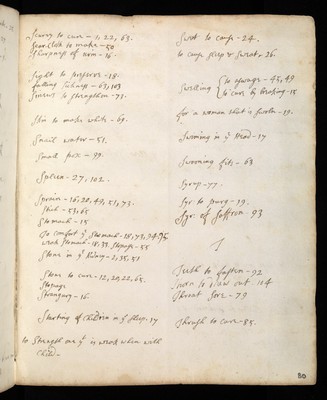 Scurvy to cure - 1, 22, 63.
Sear cloth to make - 50
Sharpness of urin - 16.
Sight to preserve - 18.
falling Sickness - 63, 103
Sinews to strengthen - 73.
Skin to make white - 69.
Snail water - 51.
Small pox - 99.
Spleen - 27, 102.
Sprain - 16, 20, 49, 51, 73.
Stich - 53, 65
Stomach - 15
To comfort yͤ Stomach - 18, 73, 94, 95
weak Stomach - 18, 39. Stopage - 55
Stone in yͤ Kidney - 2, 35, 51
Stone to cure - 12, 20, 22, 65.
Stopage
Strangury - 16.
Starting of Children in yͤ Sleep - 57
to Strength one yͭ is weak when with
Child -
Swet to cause - 24.
to cause sleep & Sweat - 26.
Swelling to aswage - 45, 49
to cure by breaking - 15
for a woman that is swoln - 19.
Swiming in yͤ Head - 17
Swooning fits - 63
Syrup - 77.
Syr to purge - 19.
Syr of Saffron - 93
T
Teeth to fasten - 92
to draw out 114
Throat sore - 79
Thrush to cure - 85.
80